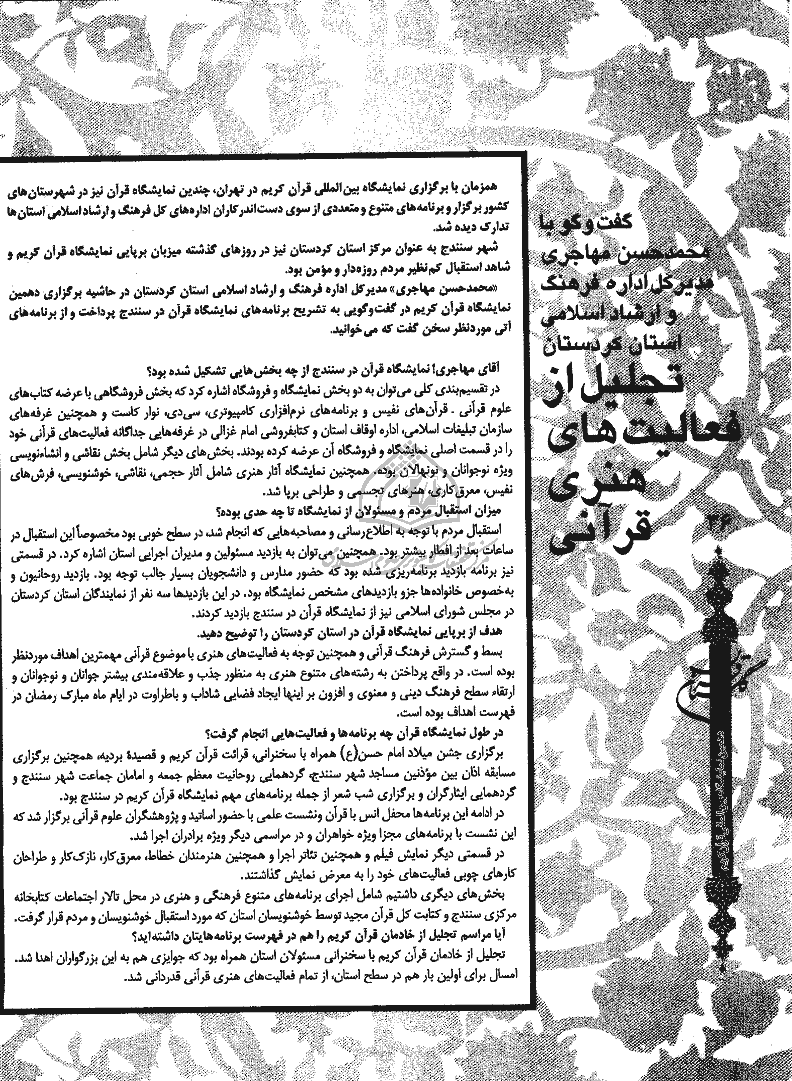 گفت‌وگو با
محمدحسن مهاجری
مدیرکل اداره فرهنگ
و ارشاد اسلامی
استان کردستان
تجلیل از
فعالیت‌های
هنری
قرآنی
۳۶
همزمان با برگزاری نمایشگاه بین‌المللی قرآن کریم در تهران، چندین نمایشگاه قرآن نیز در شهرستان‌های
کشور برگزار و برنامه‌های متنوع و متعددی از سوی دست‌اندرکاران اداره‌های کل فرهنگ و ارشاد اسلامی استان‌ها
تدارک دیده شد.
شهر سنندج به عنوان مرکز استان کردستان نیز در روزهای گذشته میزبان برپایی نمایشگاه قرآن کریم و
شاهد استقبال کم‌نظیر مردم روزه‌دار و مؤمن بود.
«محمدحسن مهاجری» مدیرکل اداره فرهنگ و ارشاد اسلامی استان کردستان در حاشیه برگزاری دهمین
نمایشگاه قرآن کریم در گفت‌وگویی به تشریح برنامه‌های نمایشگاه قرآن در سنندج پرداخت و از برنامه‌های
آتی موردنظر سخن گفت که می‌خوانید.
آقای مهاجری! نمایشگاه قرآن در سنندج از چه بخش‌هایی تشکیل شده بود؟
در تقسیم‌بندی کلی می‌توان به دو بخش نمایشگاه و فروشگاه اشاره کرد که بخش فروشگاهی با عرضه کتاب‌های
علوم قرآنی ـ قرآن‌های نفیس و برنامه‌های نرم‌افزاری کامپیوتری، سی‌دی، نوار کاست و همچنین غرفه‌های
سازمان تبلیغات اسلامی، اداره اوقاف استان و کتابفروشی امام غزالی در غرفه‌هایی جداگانه فعالیت‌های قرآنی خود
را در قسمت اصلی نمایشگاه و فروشگاه آن عرضه کرده بودند. بخش‌های دیگر شامل بخش نقاشی و انشاءنویسی
ویژه نوجوانان و نونهالان بوده. همچنین نمایشگاه آثار هنری شامل آثار حجمی، نقاشی، خوشنویسی، فرش‌های
نفیس، معرق‌کاری، هنرهای تجسمی و طراحی برپا شد.
میزان استقبال مردم و مسئولان از نمایشگاه تا چه حدی بوده؟
استقبال مردم با توجه به اطلاع‌رسانی و مصاحبه‌هایی که انجام شد، در سطح خوبی بود مخصوصاً این استقبال در
ساعات بعد از افطار بیشتر بود. همچنین می‌توان به بازدید مسئولین و مدیران اجرایی استان اشاره کرد. در قسمتی
نیز برنامه بازدید برنامه‌ریزی شده بود که حضور مدارس و دانشجویان بسیار جالب توجه بود. بازدید روحانیون و
به‌خصوص خانواده‌ها جزو بازدیدهای مشخص نمایشگاه بود. در این بازدیدها سه نفر از نمایندگان استان کردستان
در مجلس شورای اسلامی نیز از نمایشگاه قرآن در سنندج بازدید کردند.
هدف از برپایی نمایشگاه قرآن در استان کردستان را توضیح دهید.
بسط و گسترش فرهنگ قرآنی و همچنین توجه به فعالیت‌های هنری با موضوع قرآنی مهمترین اهداف موردنظر
بوده است. در واقع پرداختن به رشته‌های متنوع هنری به منظور جذب و علاقه‌مندی بیشتر جوانان و نوجوانان و
ارتقاء سطح فرهنگ دینی و معنوی و افزون بر اینها ایجاد فضایی شاداب و باطراوت در ایام ماه مبارک رمضان در
فهرست اهداف بوده است.
در طول نمایشگاه قرآن چه برنامه‌ها و فعالیت‌هایی انجام گرفت؟
برگزاری جشن میلاد امام حسن(ع) همراه با سخنرانی، قرائت قرآن کریم و قصیدهٔ بردیه، همچنین برگزاری
مسابقه اذان بین مؤذنین مساجد شهر سنندج، گردهمایی روحانیت معظم جمعه و امامان جماعت شهر سنندج و
گردهمایی ایثارگران و برگزاری شب شعر از جمله برنامه‌های مهم نمایشگاه قرآن کریم در سنندج بود.
در ادامه این برنامه‌ها محفل انس با قرآن ونشست علمی با حضور اساتید و پژوهشگران علوم قرآنی برگزار شد که
این نشست با برنامه‌های مجزا ویژه خواهران و در مراسمی دیگر ویژه برادران اجرا شد.
در قسمتی دیگر نمایش فیلم و همچنین تئاتر اجرا و همچنین هنرمندان خطاط، معرق‌کار، نازک‌کار و طراحان
کارهای چوبی فعالیت‌های خود را به معرض نمایش گذاشتند.
بخش‌های دیگری داشتیم شامل اجرای برنامه‌های متنوع فرهنگی و هنری در محل تالار اجتماعات کتابخانه
مرکزی سنندج و کتابت کل قرآن مجید توسط خوشنویسان استان که مورد استقبال خوشنویسان و مردم قرار گرفت.
آیا مراسم تجلیل از خادمان قرآن کریم را هم در فهرست برنامه‌هایتان داشته‌اید؟
تجلیل از خادمان قرآن کریم با سخنرانی مسئولان استان همراه بود که جوایزی هم به این بزرگواران اهدا شد.
امسال برای اولین بار هم در سطح استان، از تمام فعالیت‌های هنری قرآنی قدردانی شد.